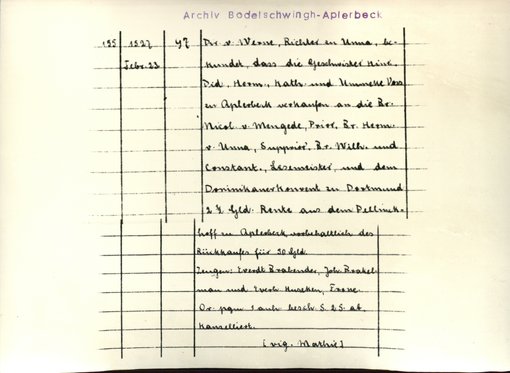 Archiv Bodelschwingh-Aplerbeck
195 1527 Y7 Dir. v. Werne, Richter zu Unna, be-
Febr. 23 kundet, dass die Geschwister Hinr.
Did., Herm., Kath. und Ummeke Voss
zu Aplerbeck verkaufen an die Br.
Nicol v. Mengede, Prior, Br. Herm.
v. Unna, Supprior, Br. Wilh. und
Constant., Lesemeister, und dem
Dominikanerkonvent zu Dortmund
2 ½ Gld. Rente aus dem Pellinck-
hoff zu Aplerbeck, vorbehaltlich des
Rückkaufes für 50 Gld.
Zeugen: Everdt Brabender, Joh. Brakel-
man und Everh. Huseken, Frone.
Or. pgm 1 anh. besch. S. 2 S. ab.
Kanselliert.
[vig. Mathie]